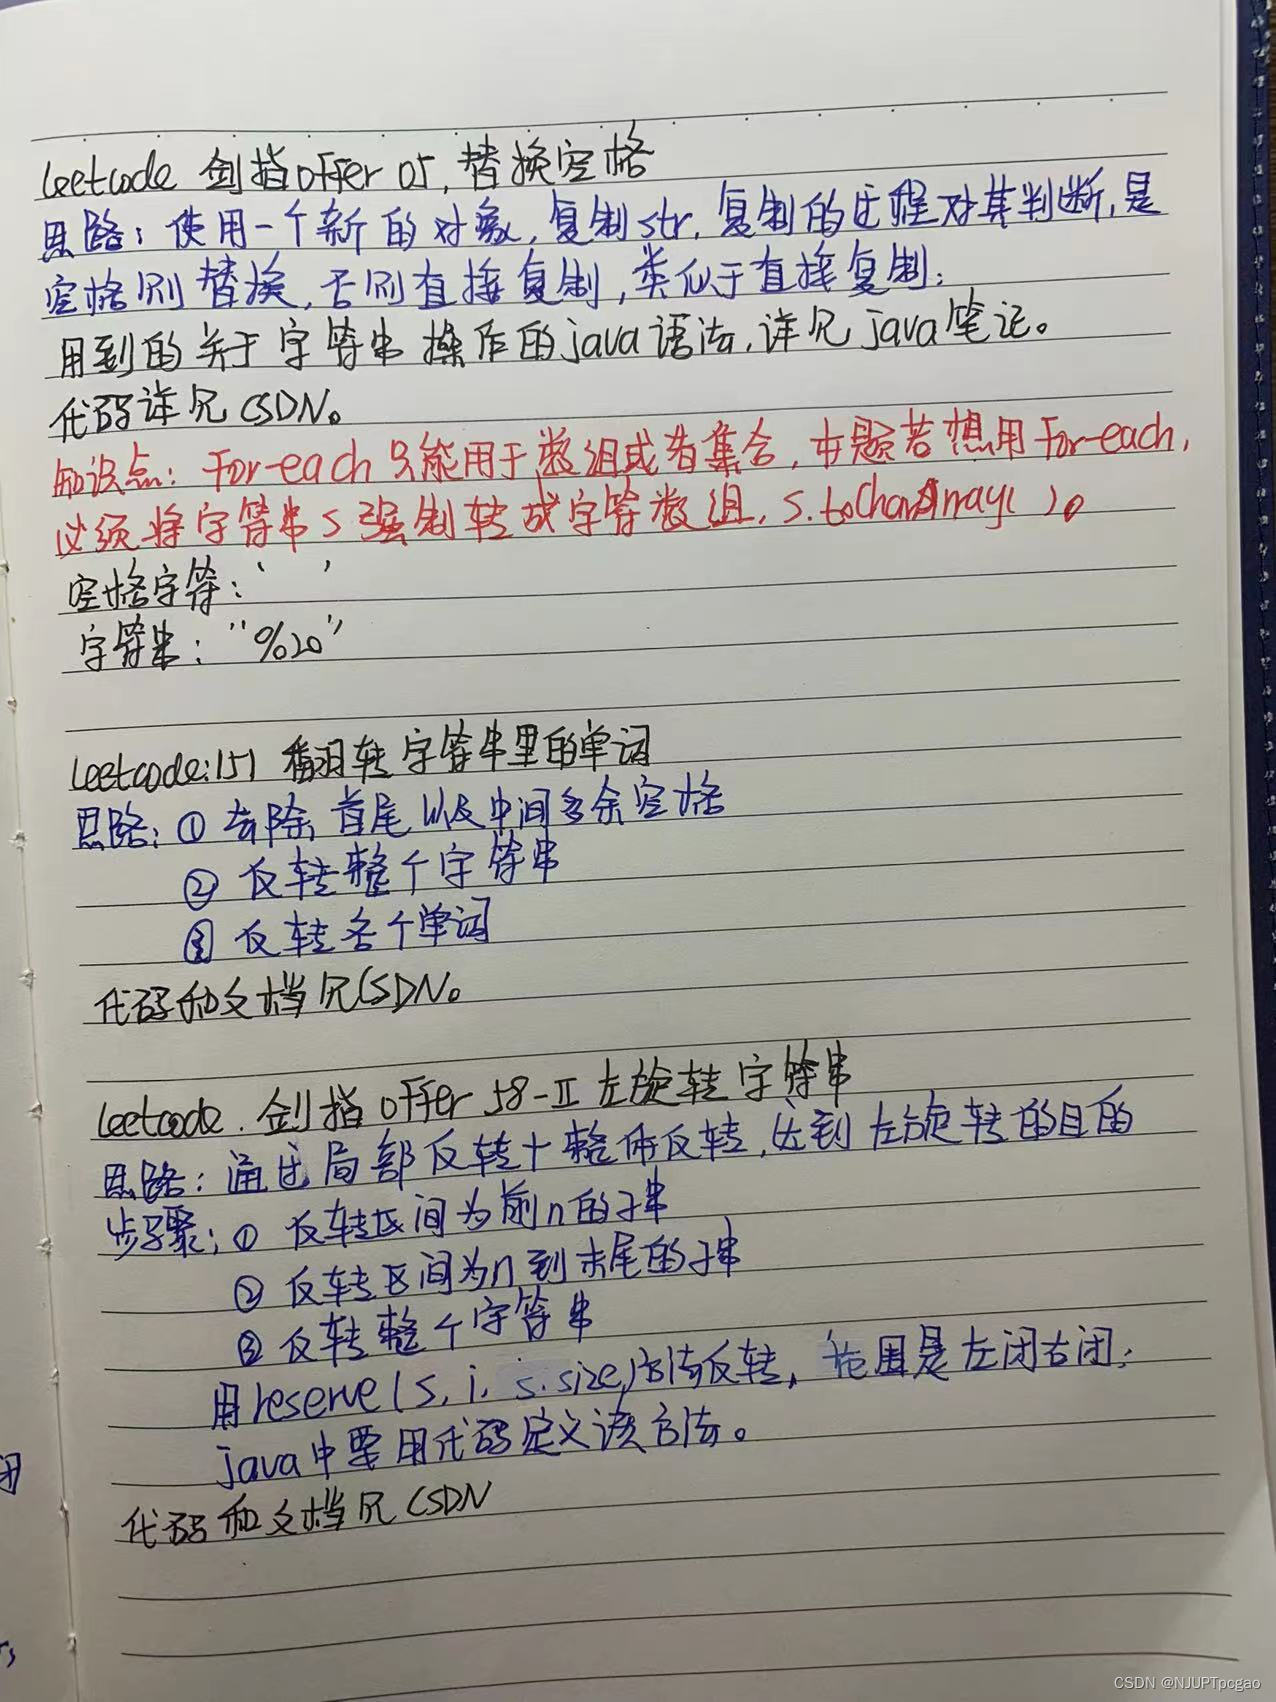 leetcode 剑指offer 05.替换空格
思路：使用一个新的对象，复制str，复制的过程对其判断，是
空格则替换，否则直接复制，类似于直接复制；
用到的关于字符串操作的java语法，详见java笔记。
代码详见CSDN。
知识点：For-each只能用于数组或者集合，本题若想用For-each，
必须将字符串s强制转成字符数组，s.toCharArray( )。
空格字符：' '
字符串："%20"
leetcode:151 翻转字符串里的单词
思路：① 去除首尾以及中间多余空格
② 反转整个字符串
③ 反转各个单词
代码和文档见CSDN。
leetcode. 剑指offer 58-II 左旋转字符串
思路：通过局部反转+整体反转，达到左旋转的目的
步骤：① 反转区间为前n的子串
② 反转区间为n到末尾的子串
③ 反转整个字符串
用reserve(s, i, s.size)方法反转，范围是左闭右闭；
java中要用代码定义该方法。
代码和文档见CSDN
闭
CSDN @NJUPTpcgao